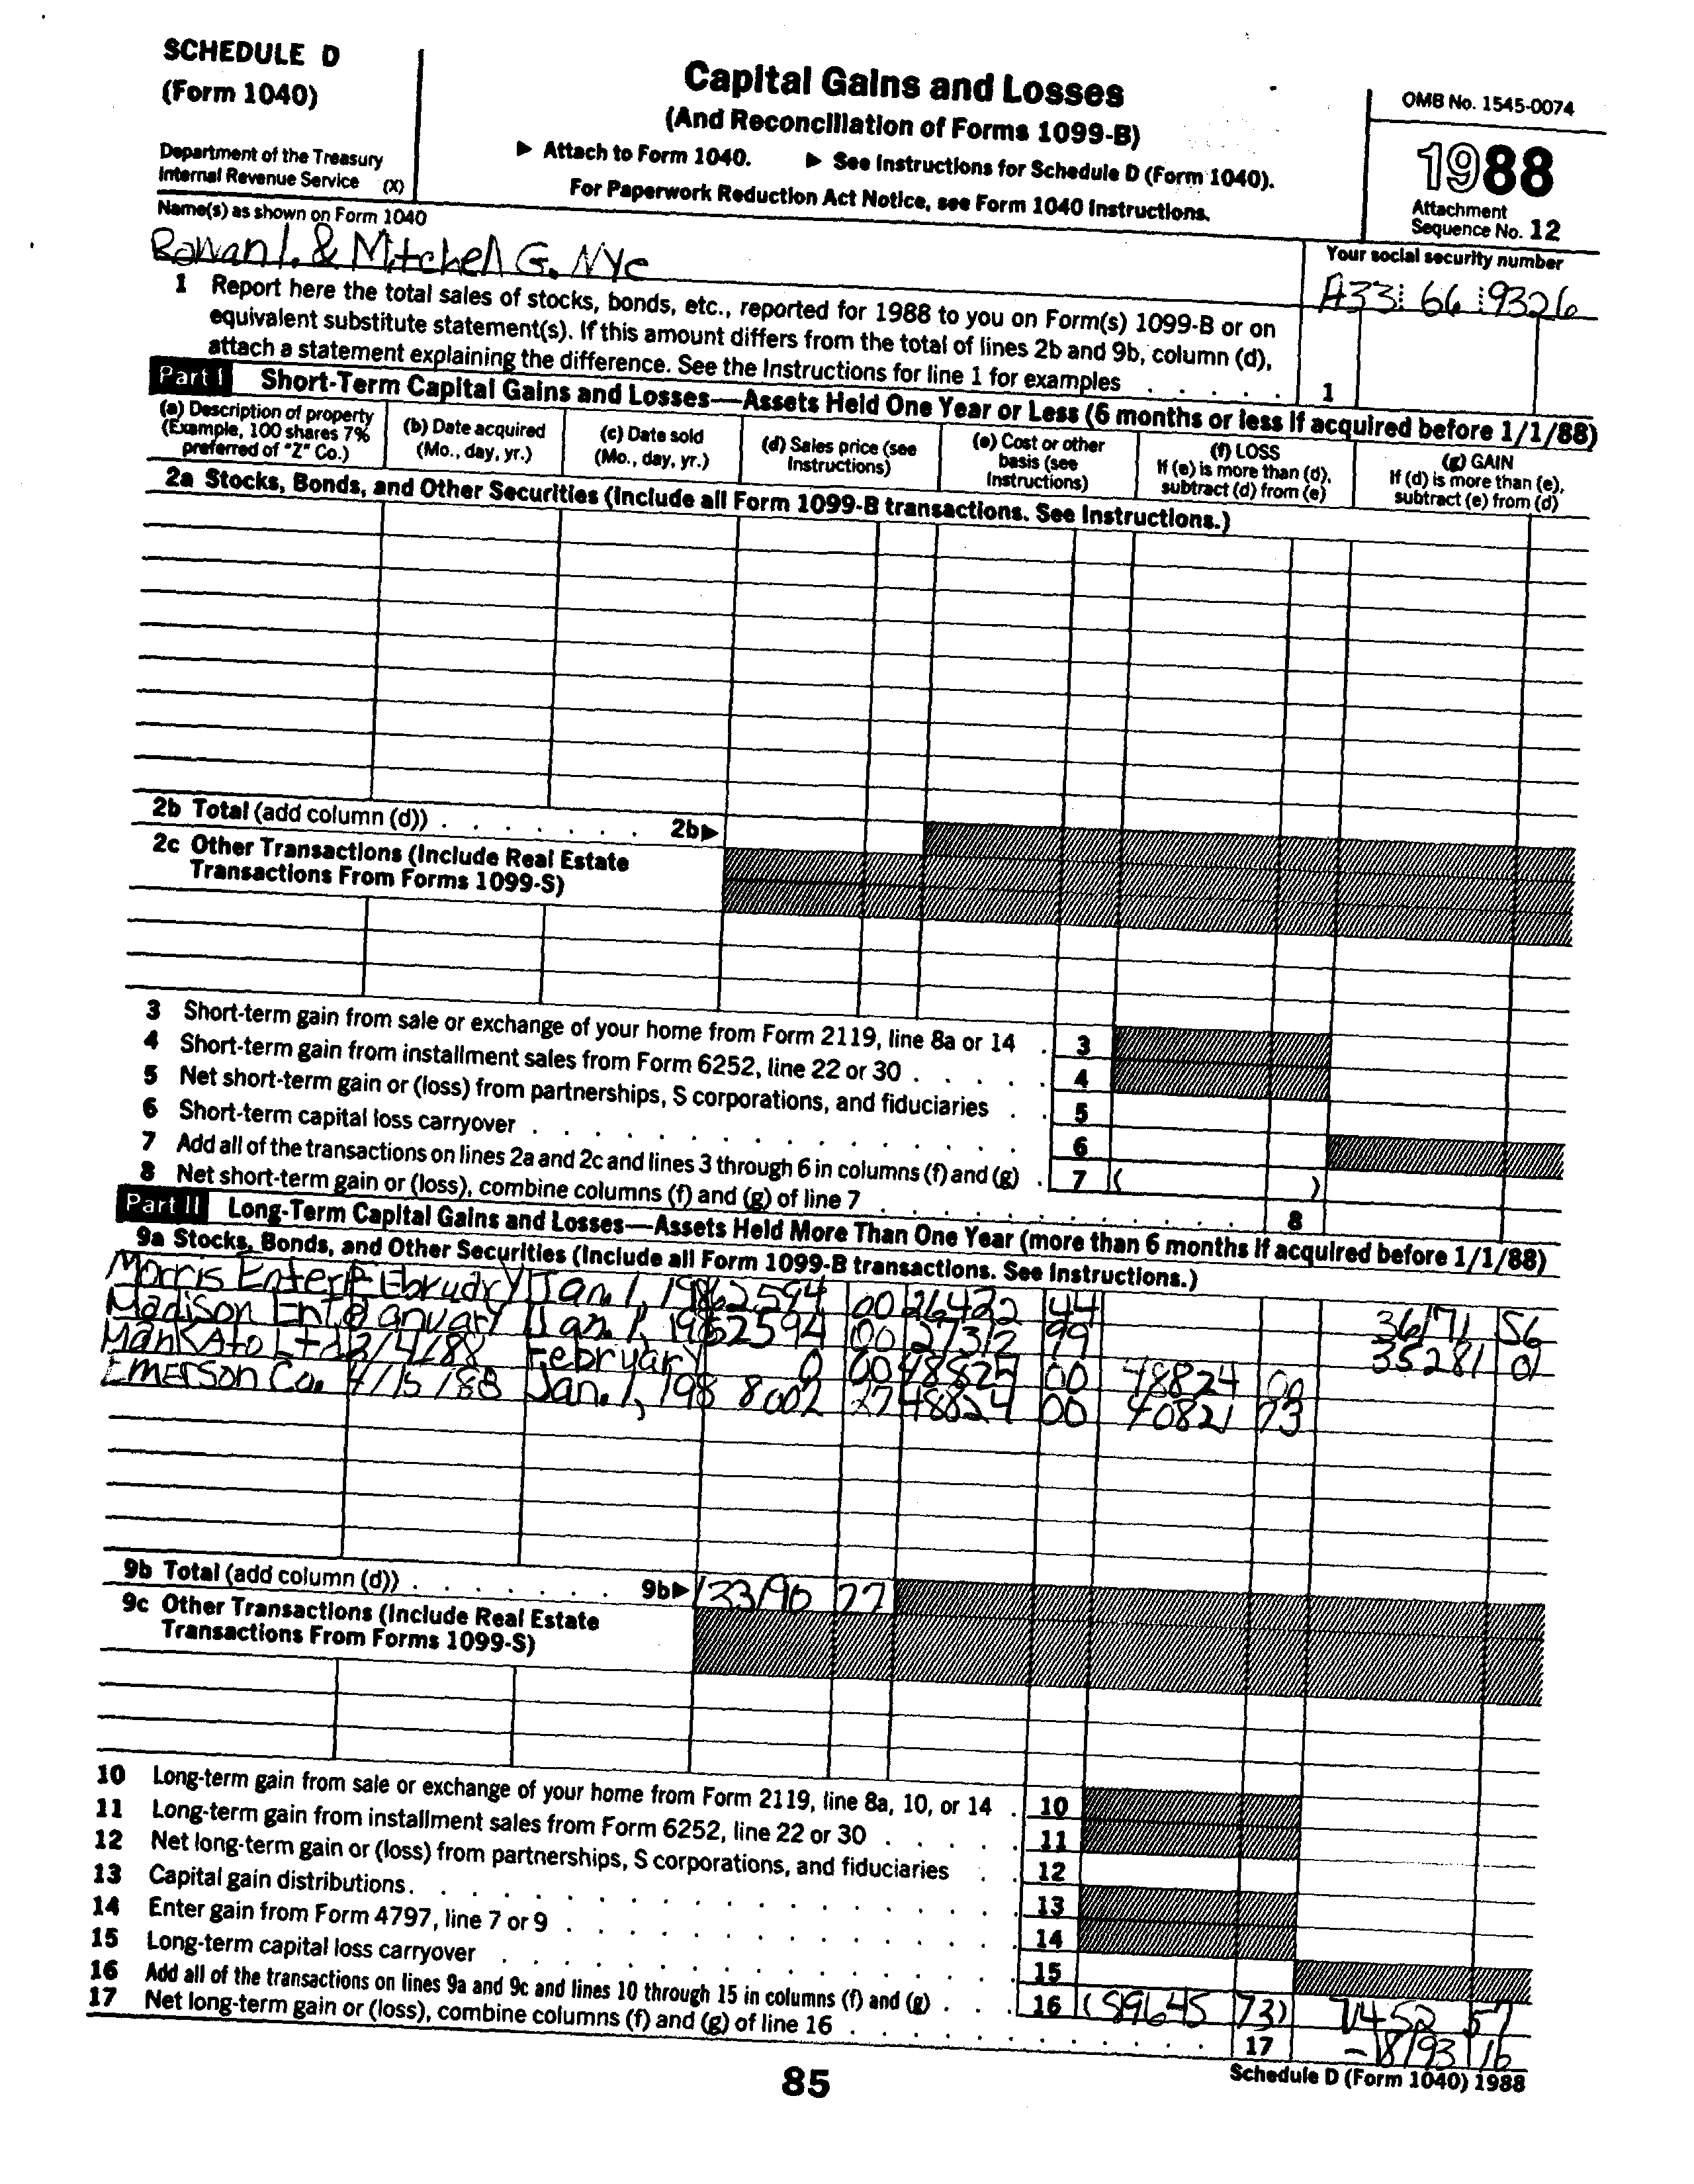 SCHEDULE D
(Form 1040)
Department of the Treasury
Internal Revenue Service (X)
Capital Gains and Losses
(And Reconciliation of Forms 1099-B)
▶ Attach to Form 1040. ▶ See Instructions for Schedule D (Form 1040).
For Paperwork Reduction Act Notice, see Form 1040 Instructions.
OMB No. 1545-0074
1988
Attachment
Sequence No. 12
Name(s) as shown on Form 1040
Rowan I. & Mitchell G. Nye
Your social security number
A33 66 9326
1 Report here the total sales of stocks, bonds, etc., reported for 1988 to you on Form(s) 1099-B or on
equivalent substitute statement(s). If this amount differs from the total of lines 2b and 9b, column (d),
attach a statement explaining the difference. See the Instructions for line 1 for examples . . . . . 1
Part I Short-Term Capital Gains and Losses—Assets Held One Year or Less (6 months or less if acquired before 1/1/88)
(a) Description of property
(Example, 100 shares 7%
preferred of "Z" Co.)
(b) Date acquired
(Mo., day, yr.)
(c) Date sold
(Mo., day, yr.)
(d) Sales price (see
Instructions)
(e) Cost or other
basis (see
Instructions)
(f) LOSS
If (e) is more than (d),
subtract (d) from (e)
(g) GAIN
If (d) is more than (e),
subtract (e) from (d)
2a Stocks, Bonds, and Other Securities (Include all Form 1099-B transactions. See Instructions.)
2b Total (add column (d)) . . . . . . . 2b▶
2c Other Transactions (Include Real Estate
Transactions From Forms 1099-S)
3 Short-term gain from sale or exchange of your home from Form 2119, line 8a or 14 . 3
4 Short-term gain from installment sales from Form 6252, line 22 or 30 . . . . . 4
5 Net short-term gain or (loss) from partnerships, S corporations, and fiduciaries . . 5
6 Short-term capital loss carryover . . . . . . . . . . . . . . . 6
7 Add all of the transactions on lines 2a and 2c and lines 3 through 6 in columns (f) and (g) . 7 ( )
8 Net short-term gain or (loss), combine columns (f) and (g) of line 7 . . . . . . . . . . . . 8
Part II Long-Term Capital Gains and Losses—Assets Held More Than One Year (more than 6 months if acquired before 1/1/88)
9a Stocks, Bonds, and Other Securities (Include all Form 1099-B transactions. See Instructions.)
Morris Enterp February Jan. 1, 198 62594 00 26422 44 36171 56
Madison Ent January Jan. 1, 198 62594 00 27312 99 35281 01
Mankato Ltd 2/4/88 February 0 00 48825 00 48824 00
Emerson Co. 4/15/88 Jan. 1, 198 8002 27 48824 00 40821 73
9b Total (add column (d)) . . . . . . . 9b▶ 133190 27
9c Other Transactions (Include Real Estate
Transactions From Forms 1099-S)
10 Long-term gain from sale or exchange of your home from Form 2119, line 8a, 10, or 14 . 10
11 Long-term gain from installment sales from Form 6252, line 22 or 30 . . . . . 11
12 Net long-term gain or (loss) from partnerships, S corporations, and fiduciaries . . 12
13 Capital gain distributions . . . . . . . . . . . . . . . . . 13
14 Enter gain from Form 4797, line 7 or 9 . . . . . . . . . . . . . 14
15 Long-term capital loss carryover . . . . . . . . . . . . . . . 15
16 Add all of the transactions on lines 9a and 9c and lines 10 through 15 in columns (f) and (g) . . . 16 (89645 73) 71452 57
17 Net long-term gain or (loss), combine columns (f) and (g) of line 16 . . . . . . . . . . . . 17 -18193 16
85
Schedule D (Form 1040) 1988